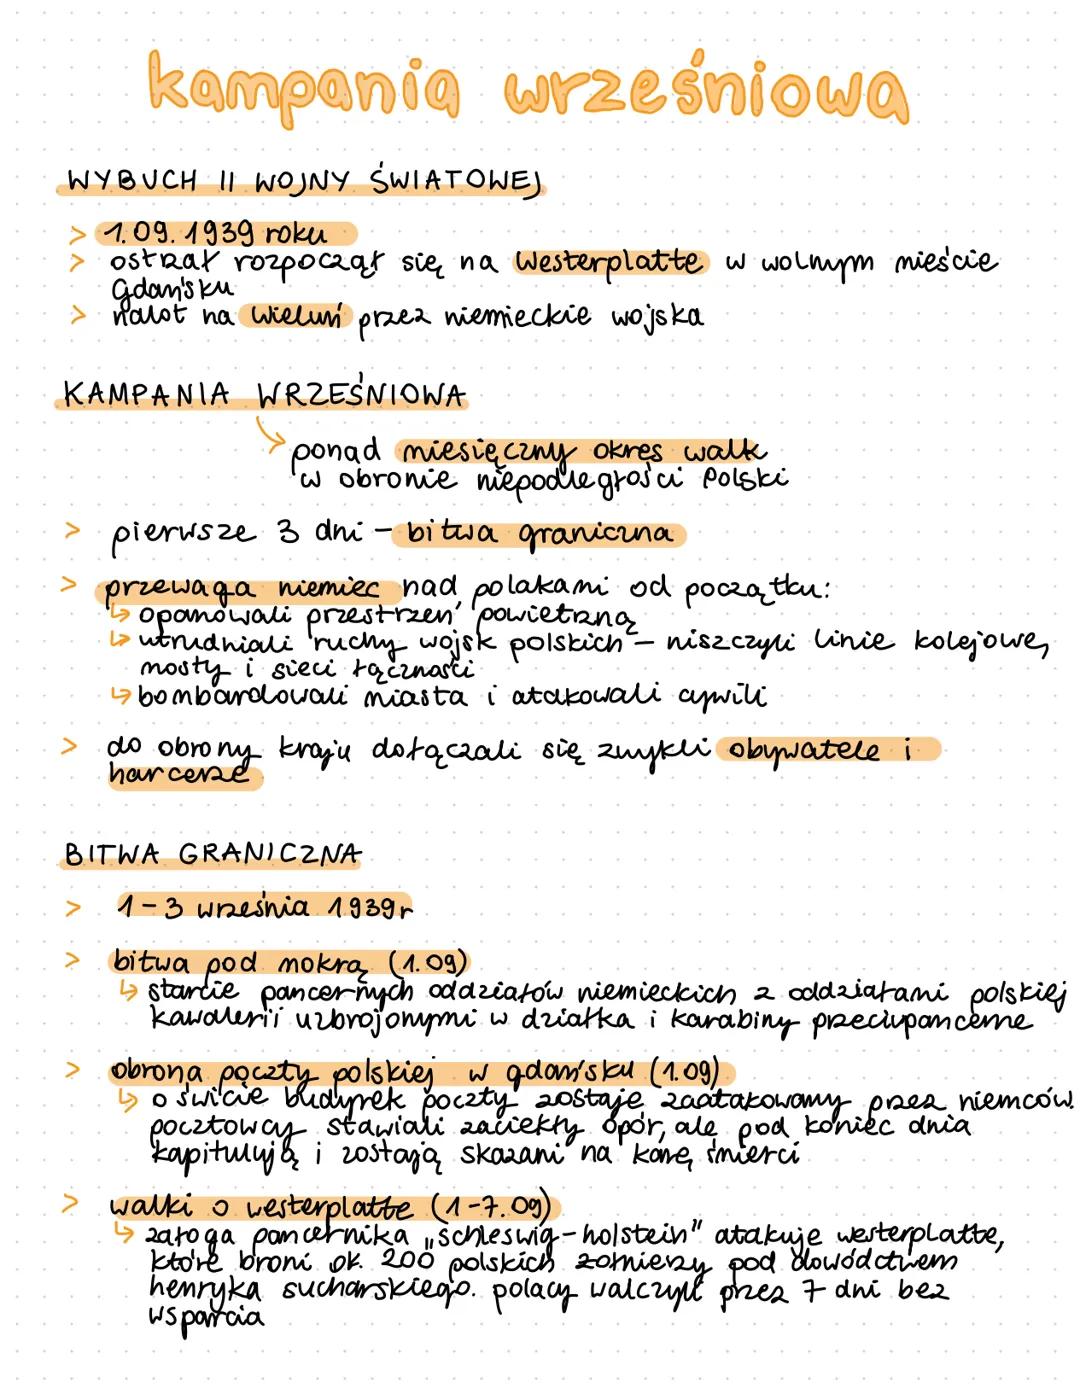 kampania wrześniowa
WYBUCH II WOJNY ŚWIATOWEJ
> 1.09.1939 roku
> ostrzał rozpoczął się na Westerplatte w wolnym mieście
Gdańsku
> nalot na Wieluń przez niemieckie wojska
KAMPANIA WRZEŚNIOWA
ponad miesięczny okres walk
w obronie niepodległości Polski
> pierwsze 3 dni - bitwa graniczna
> przewaga niemiec nad polakami od początku:
↳ opanowali przestrzeń powietrzną
↳ utrudniali ruchy wojsk polskich - niszczyli linie kolejowe,
mosty i sieci łączności
↳ bombardowali miasta i atakowali cywili
> do obrony kraju dołączali się zwykli obywatele i
harcerze
BITWA GRANICZNA
> 1-3 września 1939r
> bitwa pod mokrą (1.09)
↳ starcie pancernych oddziałów niemieckich z oddziałami polskiej
kawalerii uzbrojonymi w działka i karabiny przeciwpancerne
> obrona poczty polskiej w gdańsku (1.09)
↳ o świcie budynek poczty zostaje zaatakowany przez niemców.
pocztowcy stawiali zaciekły opór, ale pod koniec dnia
kapitulują i zostają skazani na karę śmierci
> walki o westerplatte (1-7.09)
↳ załoga pancernika „schleswig-holstein" atakuje westerplatte,
które broni ok. 200 polskich żołnierzy pod dowództwem
henryka sucharskiego. polacy walczyli przez 7 dni bez
wsparcia